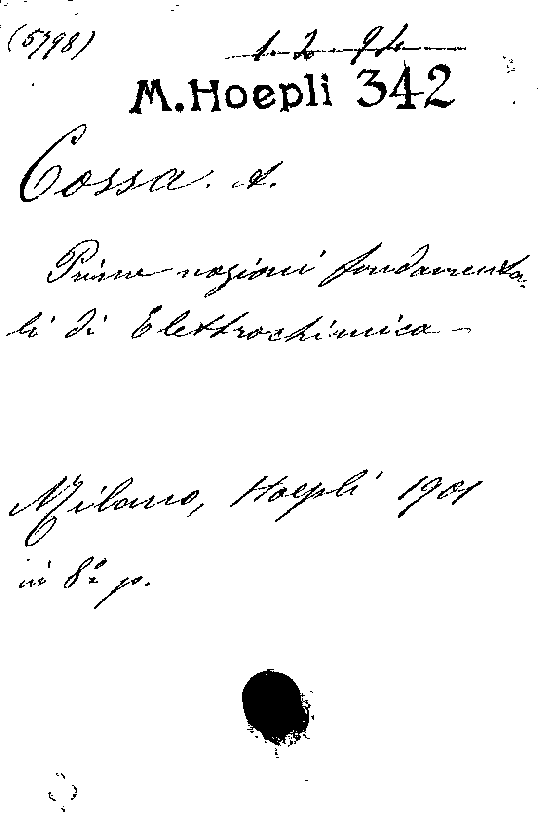 (5798)
1. 2. 94
M. Hoepli 342
Cossa. A.
Prime nozioni fondamenta-
li di Elettrochimica -
Milano, Hoepli 1901
in 8º p.